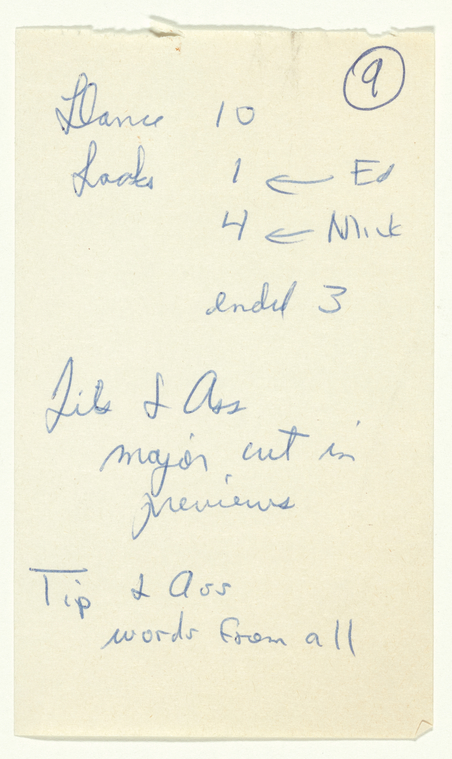 9
Dance 10
Looks 1 ← Ed
4 ← Nick
ended 3
Tits & Ass
major cut in
previews
Tip & Ass
words from all